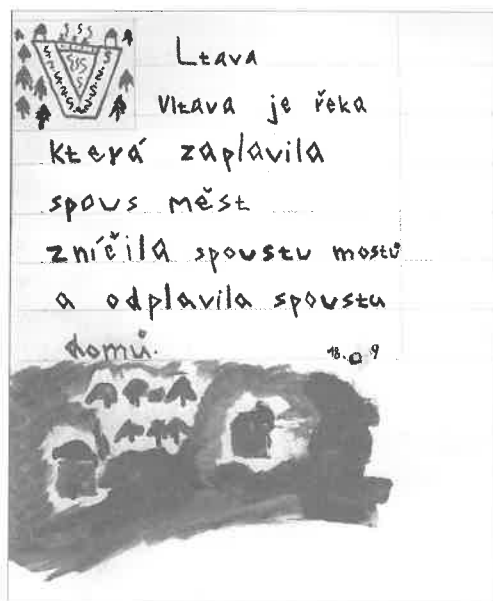 Ltava
Vltava je řeka
která zaplavila
spous měst
zníčila spoustu mostů
a odplavila spoustu
domů.
18. 9